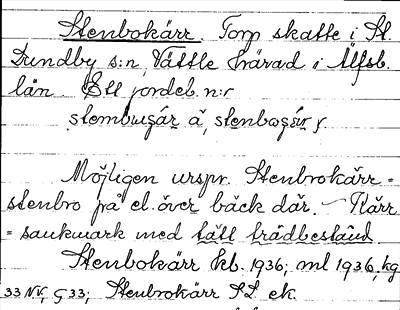 Stenbokärr. Torp skatte i St.
Lundby s:n, Vättle härad i Älfsb.
län. Ett jordeb. n:r
stembuşár a, stenboşár y.
Möjligen urspr. Stenbrokärr =
stenbro på el. över bäck där. - Kärr
= sankmark med tätt trädbestånd.
Stenbokärr kb. 1936; ml 1936, kg
33 NV, G 33; Stenbrokärr SL ek.